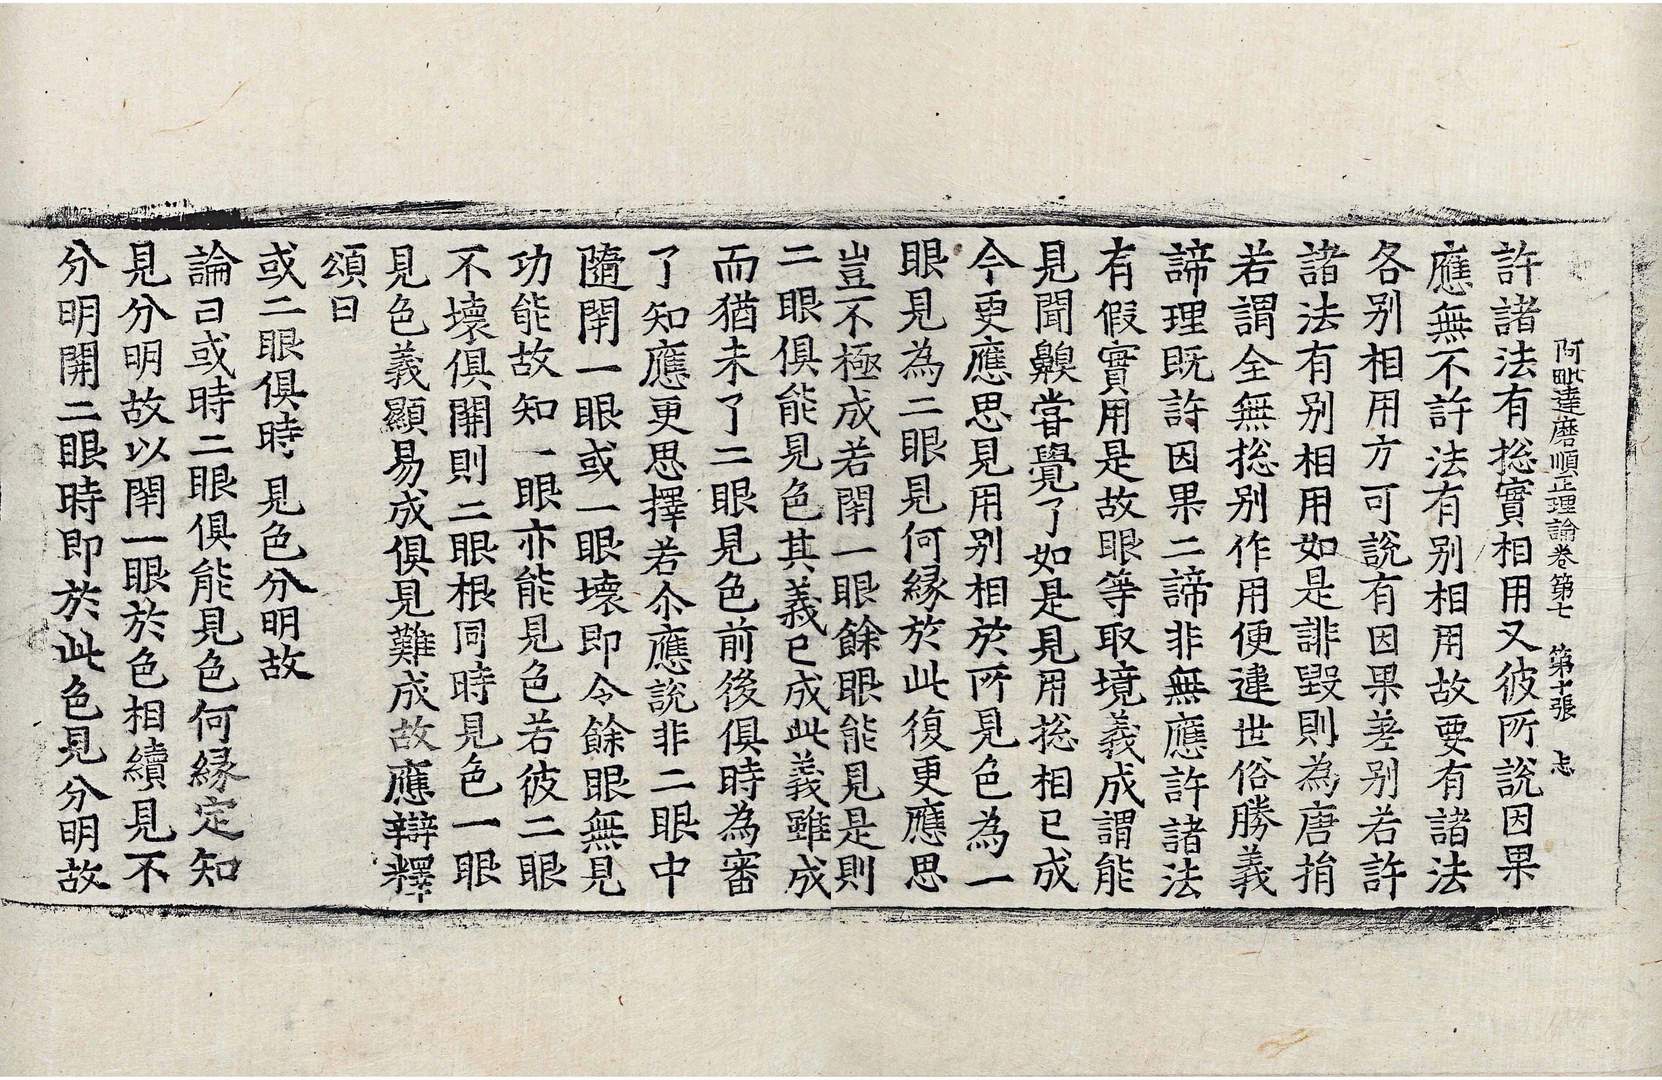 阿毗達磨順正理論卷第七　第十張　忐
許諸法有捴實相用又彼所說因果
應無不許法有別相用故要有諸法
各別相用方可說有因果差別若許
諸法有別相用如是誹毀則為唐捐
若謂全無捴別作用便違世俗勝義
諦理旣許因果二諦非無應許諸法
有假實用是故眼等取境義成謂能
見聞齅甞覺了如是見用捴相已成
今更應思見用別相於所見色為一
眼見為二眼見何緣於此復更應思
豈不極成若閇一眼餘眼能見是則
二眼俱能見色其義已成此義雖成
而猶未了二眼見色前後俱時為審
了知應更思擇若尒應說非二眼中
隨閇一眼或一眼壞即令餘眼無見
功能故知一眼亦能見色若彼二眼
不壞俱開則二眼根同時見色一眼
見色義顯易成俱見難成故應辯釋
頌曰
或二眼俱時　見色分明故
論曰或時二眼俱能見色何緣定知
見分明故以閇一眼於色相續見不
分明開二眼時即於此色見分明故